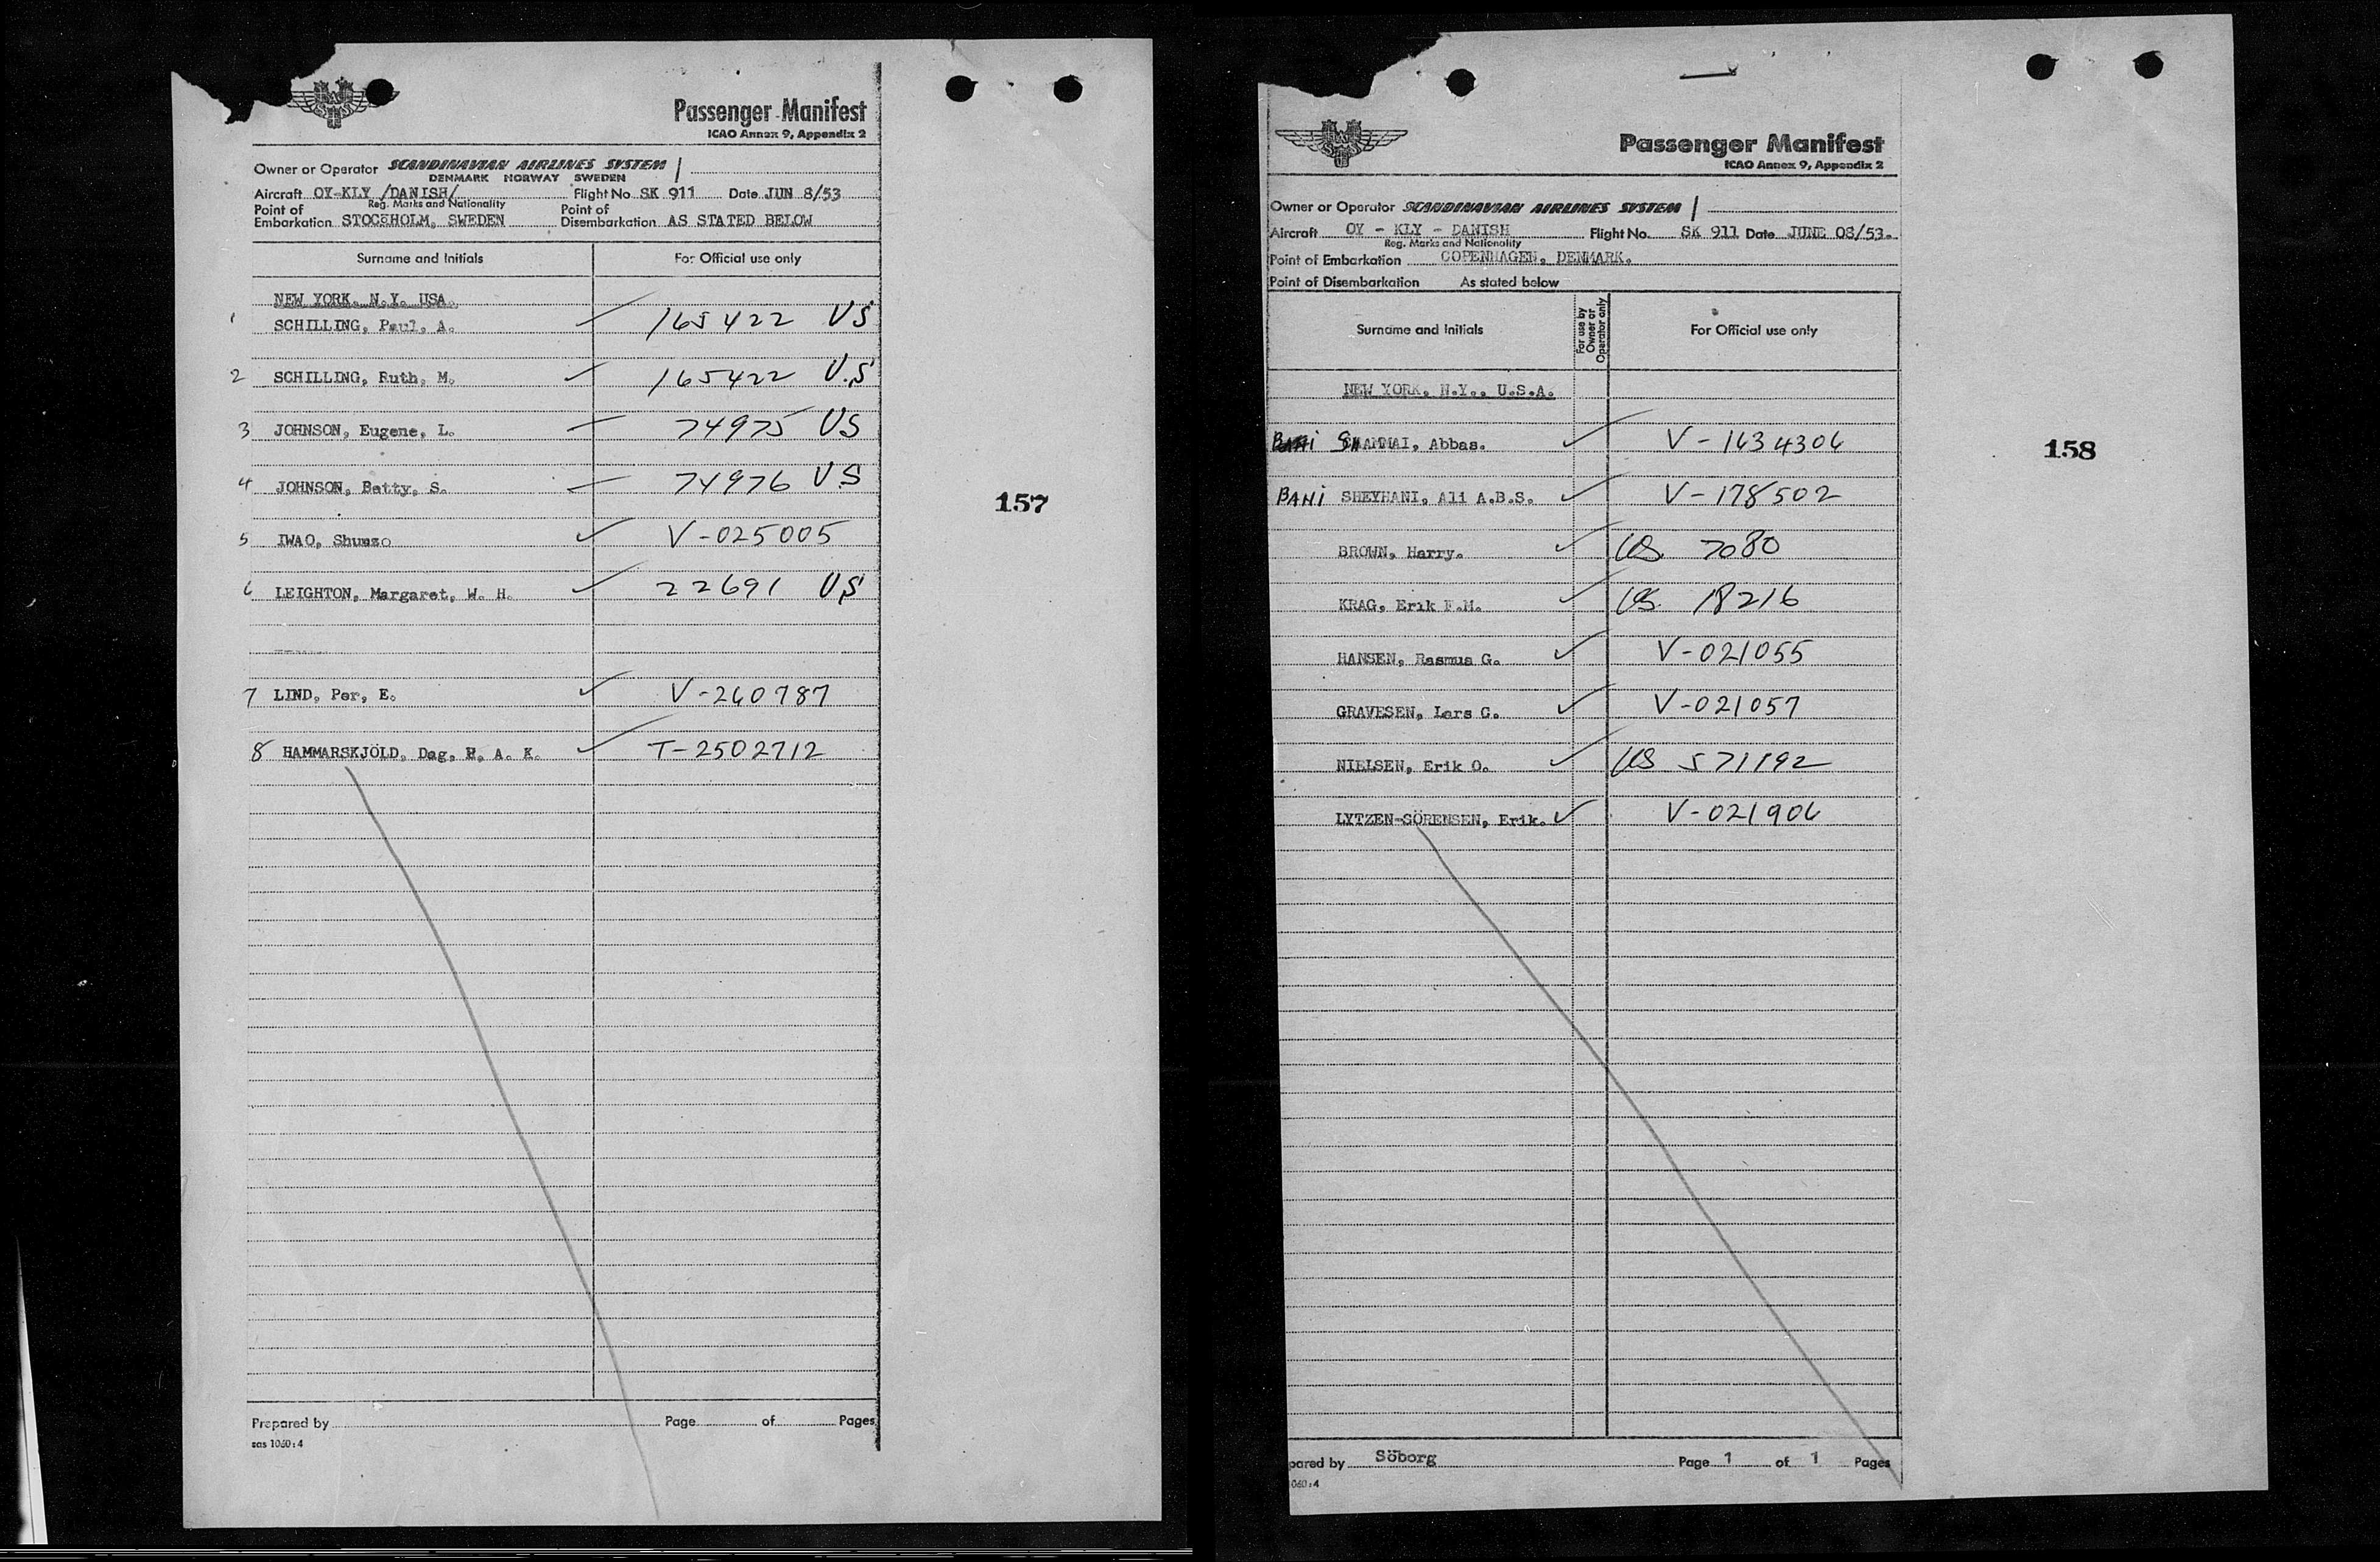 Passenger Manifest
ICAO Annex 9, Appendix 2
Owner or Operator SCANDINAVIAN AIRLINES SYSTEM
DENMARK NORWAY SWEDEN
Aircraft OY-KLY /DANISH/ Flight No SK 911 Date JUN 8/53
Reg. Marks and Nationality
Point of Embarkation STOCKHOLM, SWEDEN Point of Disembarkation AS STATED BELOW
Surname and Initials For Official use only
NEW YORK. N.Y. USA.
1 SCHILLING, Paul, A. 165422 US
2 SCHILLING, Ruth, M. 165422 U.S
3 JOHNSON, Eugene, L. 74975 US
4 JOHNSON, Betty, S. 74976 US
5 IWAO, Shunzo V-025005
6 LEIGHTON, Margaret, W. H. 22691 US
7 LIND, Per, E. V-260787
8 HAMMARSKJÖLD, Dag, H, A. K. T-2502712
Prepared by Page of Pages
sas 1060:4
157
Passenger Manifest
ICAO Annex 9, Appendix 2
Owner or Operator SCANDINAVIAN AIRLINES SYSTEM
Aircraft OY - KLY - DANISH Flight No. SK 911 Date JUNE 08/53.
Reg. Marks and Nationality
Point of Embarkation COPENHAGEN, DENMARK.
Point of Disembarkation As stated below
Surname and Initials For use by Owner or Operator only For Official use only
NEW YORK, N.Y., U.S.A.
BANI SHAMMAI, Abbas. V-1634306
BANI SHEYHANI, Ali A.B.S. V-178502
BROWN, Harry. US 7080
KRAG, Erik F.M. US 18216
HANSEN, Rasmus G. V-021055
GRAVESEN, Lars C. V-021057
NIELSEN, Erik O. US 571192
LYTZEN-SÖRENSEN, Erik. V-021906
pared by Söborg Page 1 of 1 Pages
060:4
158